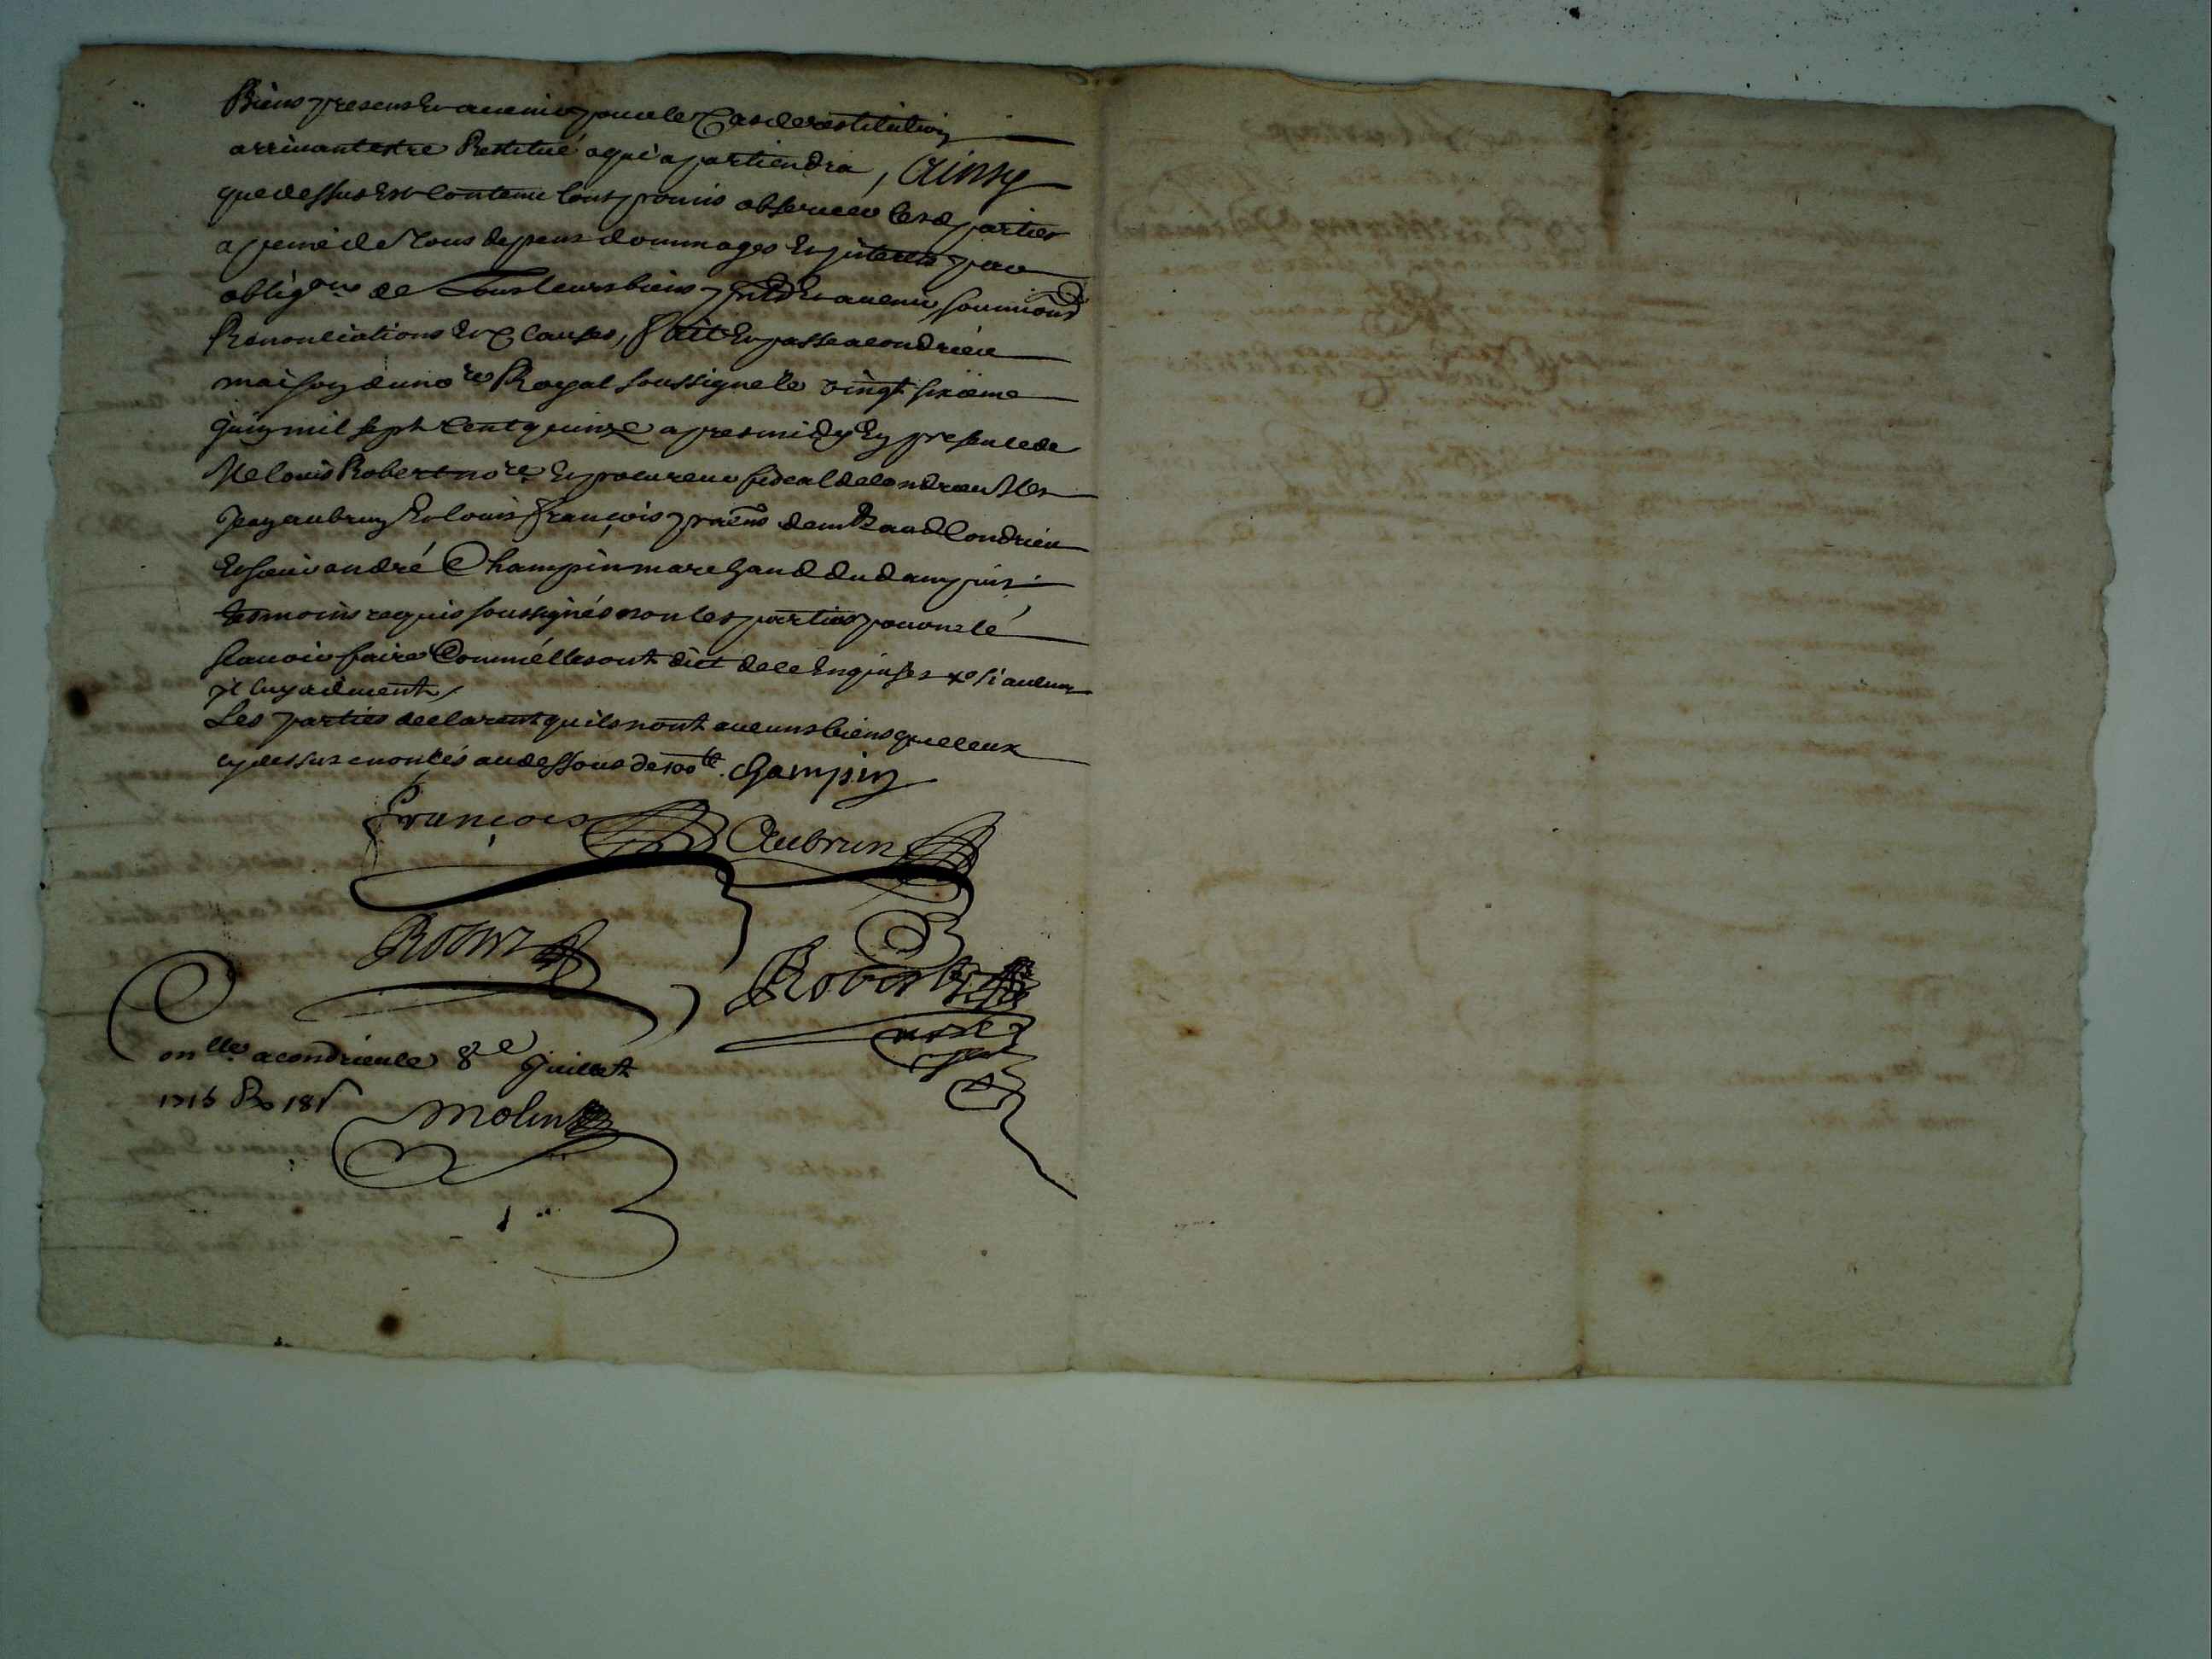 Biens presens et avenir pour le Cas de restitution
arrivant estre Restitué a qui apartiendra, Ainsy
que dessus est Contenu l'ont promis observer lesd parties
a peine de Tous depens dommages et interets par
obligons de Tous leurs biens pnts et avenir, soumions
Renonciations et Clauses, Fait et passe a condrieu
maison du nore Royal soussigne le vingt sixieme
juin mil sept Cent quinze apres midy En presence de
Me louis Robert nore et procureur fiscal de Condrieu Mes
Jean aubrun et louis François pratiens demt aud Condrieu
et sieur andré Champin marchand du dampuis
tesmoins requis soussignés non les parties pour ne le
scavoir faire Comme elles ont dit de ce Enquises
Les parties declarent qu'ils n'ont aucuns biens que ceux
cy dessus enoncés au dessous de 100 lt. Champin
François Aubrun
Robert
Robert
nore
Conlle a condrieu le 8e Juillet
1715 R 18s
Molin